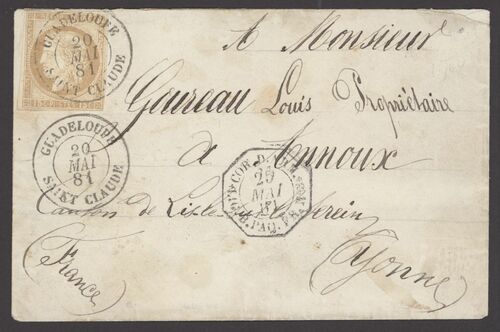 GUADELOUPE
20
MAI
81
SAINT CLAUDE
A Monsieur
Gaureau Louis Propriétaire
à Annoux
GUADELOUPE
20
MAI
81
SAINT CLAUDE
COR. D.
25
MAI
81
PAQ. FR.
Canton de Lisle sur le Serein
Yonne
(France)